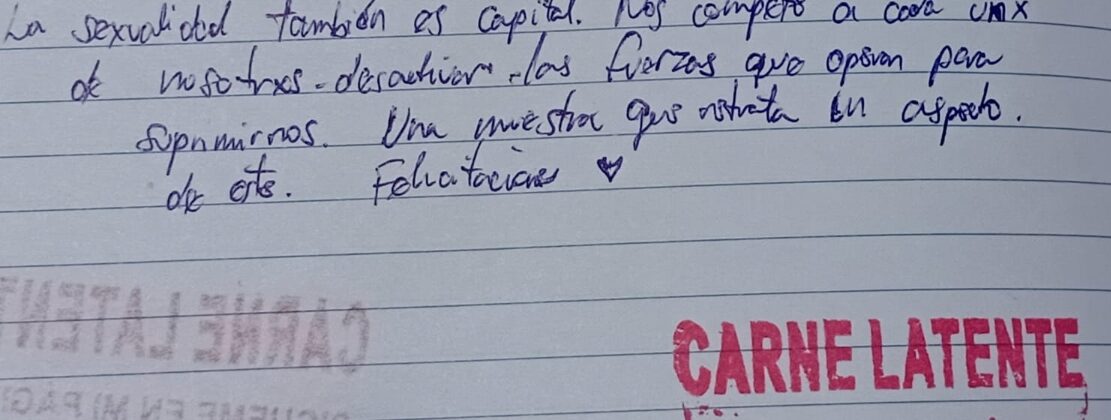 La sexualidad también es capital. Nos compete a cada unx
de nosotrxs desactivar las fuerzas que operan para
suprimirnos. Una muestra que retrata un aspecto
de este. Felicitaciones ♥
CARNE LATENTE
CARNE LATENT
SIGUEME EN MI PAGI